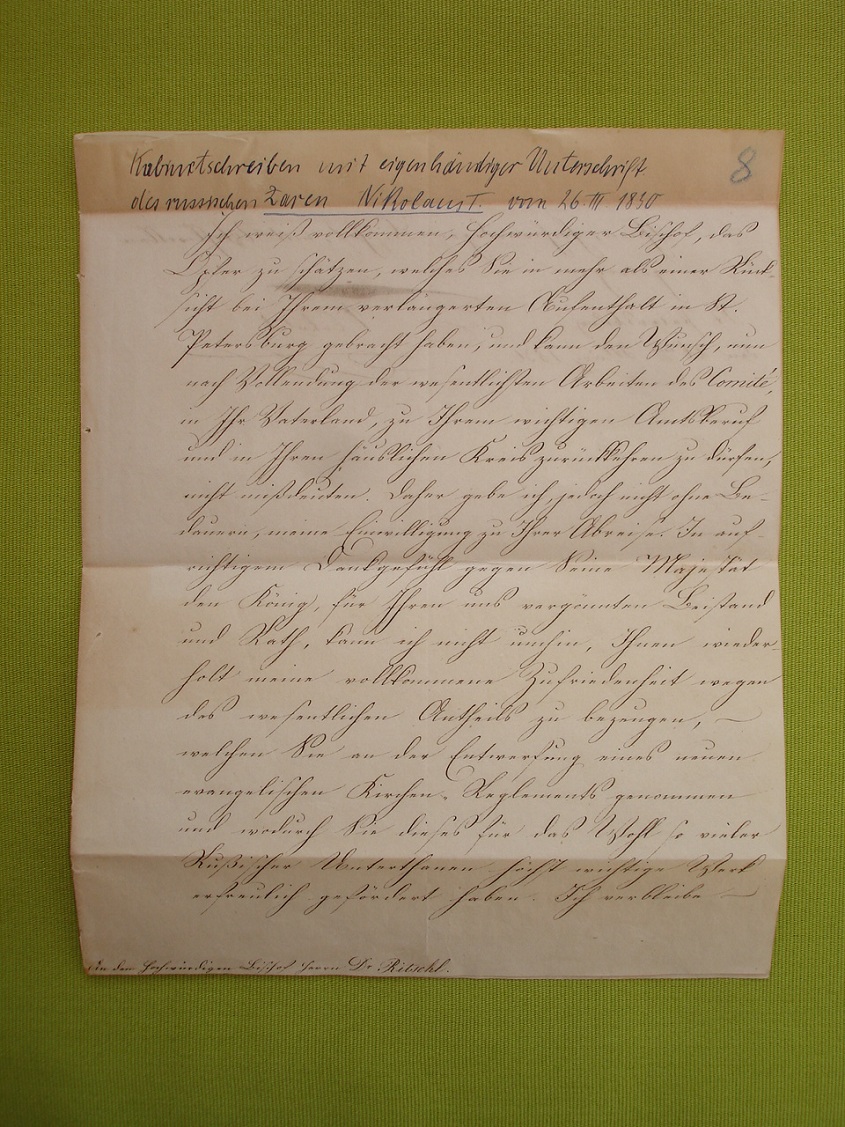 Kabinetschreiben mit eigenhändiger Unterschrift
des russischen Zaren Nikolaus I. vom 26. III. 1830
8
Ich weiß vollkommen, Hochwürdiger Bischof, das
Opfer zu schätzen, welches Sie in mehr als einer Rück-
sicht bei Ihrem verlängerten Aufenthalt in St.
Petersburg gebracht haben, und kann den Wunsch, nun
nach Vollendung der wesentlichsten Arbeiten des Comité,
in Ihr Vaterland, zu Ihrem wichtigen Amtsberuf
und in Ihren häuslichen Kreis zurückkehren zu dürfen,
nicht mißdeuten. Daher gebe ich, jedoch nicht ohne Be-
dauern, meine Einwilligung zu Ihrer Abreise. In auf-
richtigem Dankgefühl gegen Seine Majestät
den König, für Ihren uns vergönnten Beistand
und Rath, kann ich nicht umhin, Ihnen wieder-
holt meine vollkommene Zufriedenheit wegen
des wesentlichen Antheils zu bezeugen, —
welchen Sie an der Entwerfung eines neuen
evangelischen Kirchen-Reglements genommen
und wodurch Sie dieses für das Wohl so vieler
Rußischer Unterthanen höchst wichtige Werk
erfreulich gefördert haben. Ich verbleibe —
An den Hochwürdigen Bischof Herrn Dr Ritschl.